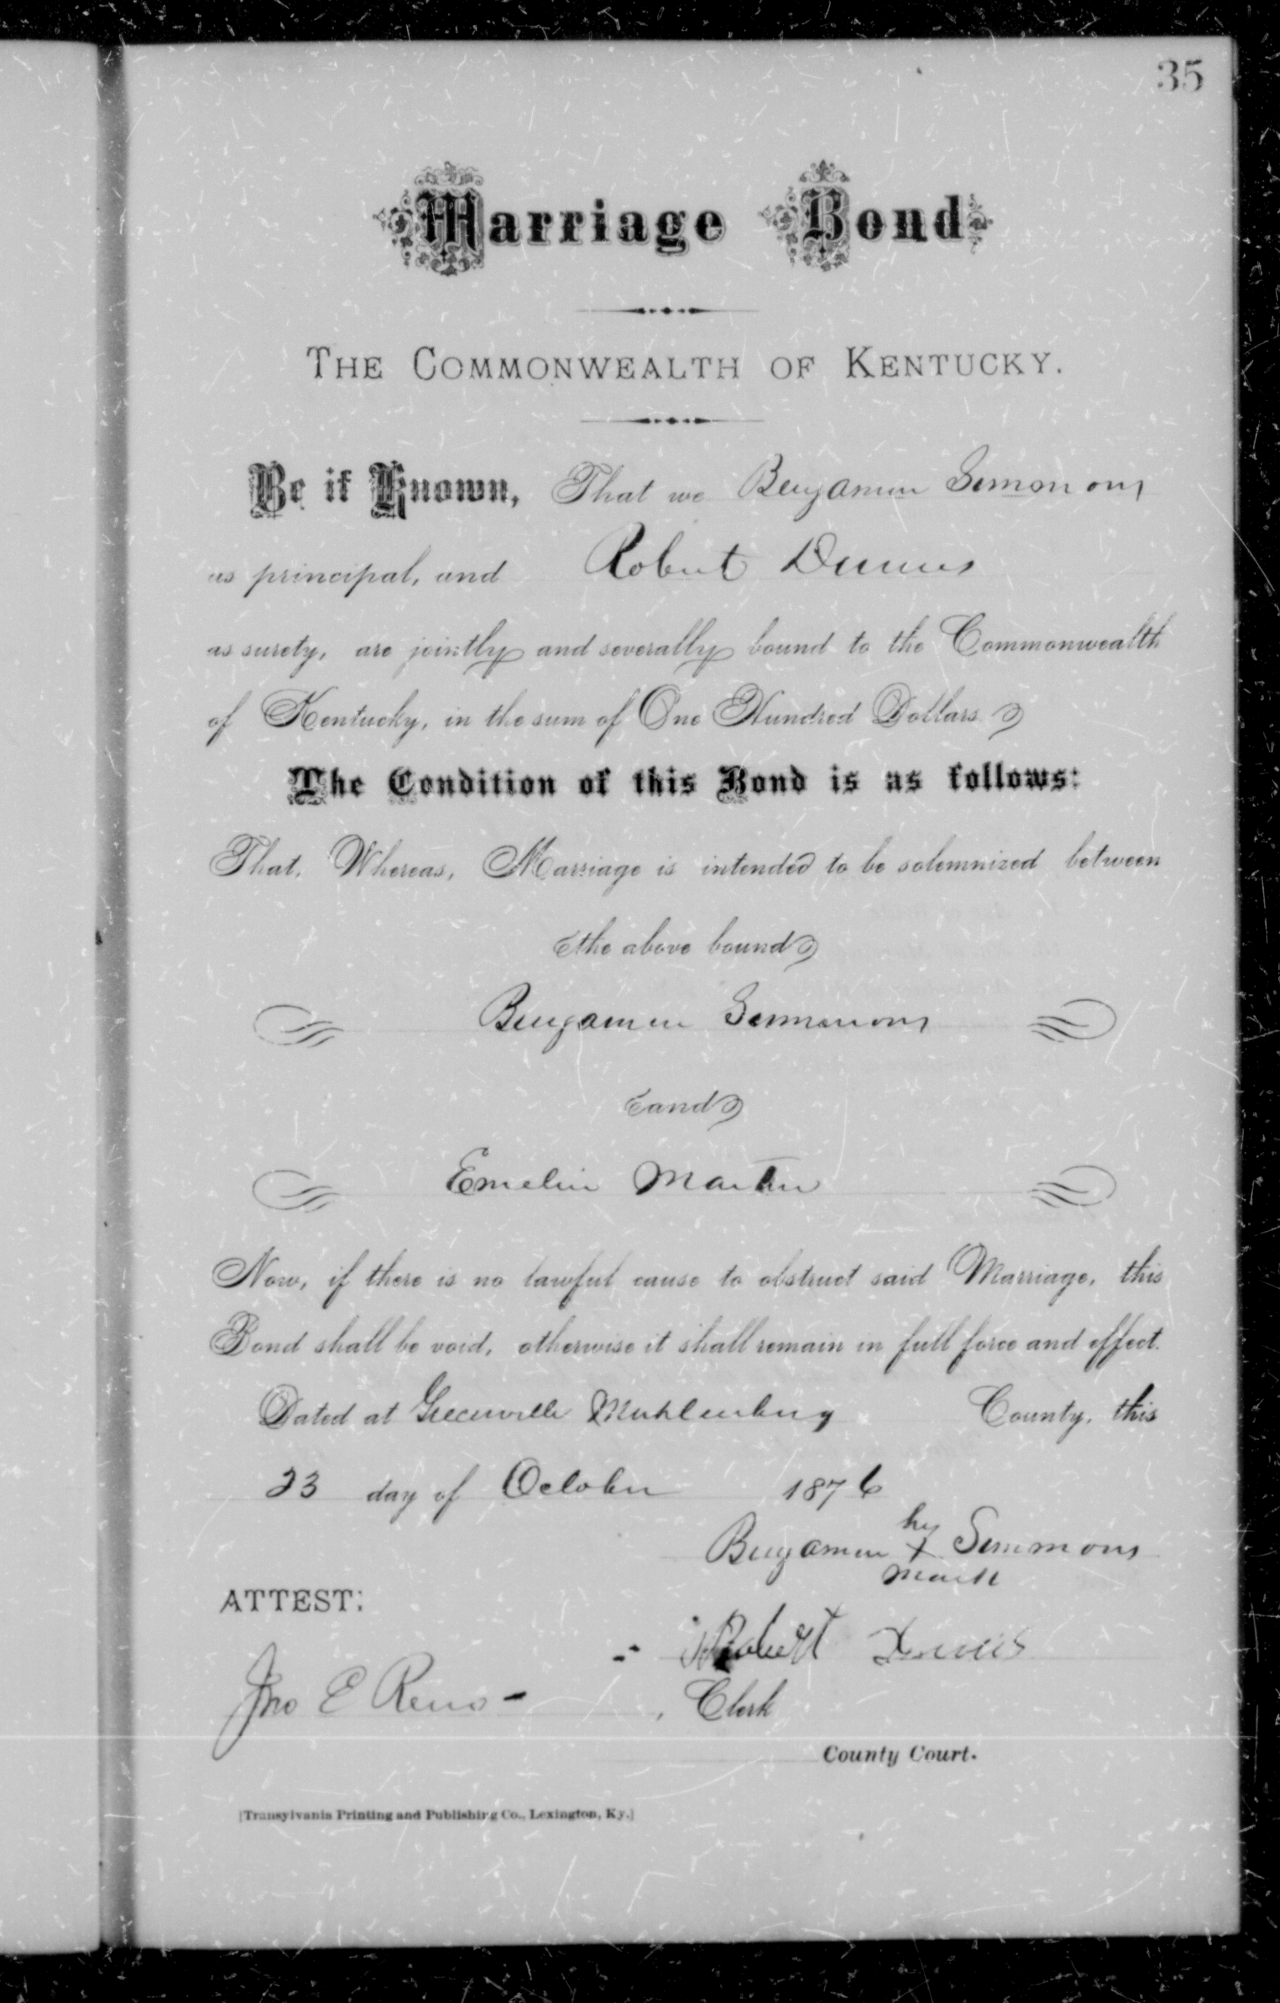 35
Marriage Bond
THE COMMONWEALTH OF KENTUCKY.
Be it Known, That we Benjamin Simmons
as principal, and Robert
as surety, are jointly and severally bound to the Commonwealth
of Kentucky, in the sum of One Hundred Dollars
The Condition of this Bond is as follows:
That, Whereas, Marriage is intended to be solemnized between
the above bound
Benjamin Simmons
and
Emelin Martin
Now, if there is no lawful cause to obstruct said Marriage, this
Bond shall be void, otherwise it shall remain in full force and effect.
Dated at Greenville Muhlenburg County, this
23 day of October 1876
his
Benjamin X Simmons
mark
ATTEST:
Robert
Jno E Reno - , Clerk
County Court.
[Transylvania Printing and Publishing Co., Lexington, Ky.]